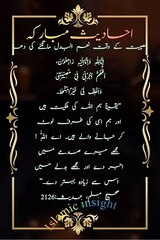 احادیث مبارکہ
مصیبت کے وقت نعم البدل مانگنے کی دعا
إِنَّا لِلَّهِ وَإِنَّا إِلَيْهِ رَاجِعُونَ،
اللَّهُمَّ أْجُرْنِي فِي مُصِيبَتِي
وَأَخْلِفْ لِي خَيْرًا مِنْهَا
"یقیناً ہم اللہ کی ملکیت ہیں
اور ہم اسی کی طرف لوٹ
کر جانے والے ہیں۔ اے اللہ!
مجھے میرے صدمے میں
اجر دے اور مجھے بدلے میں
اس سے زیادہ بہتر دے۔"
صحیح مسلم حدیث:2126
Islamic insight